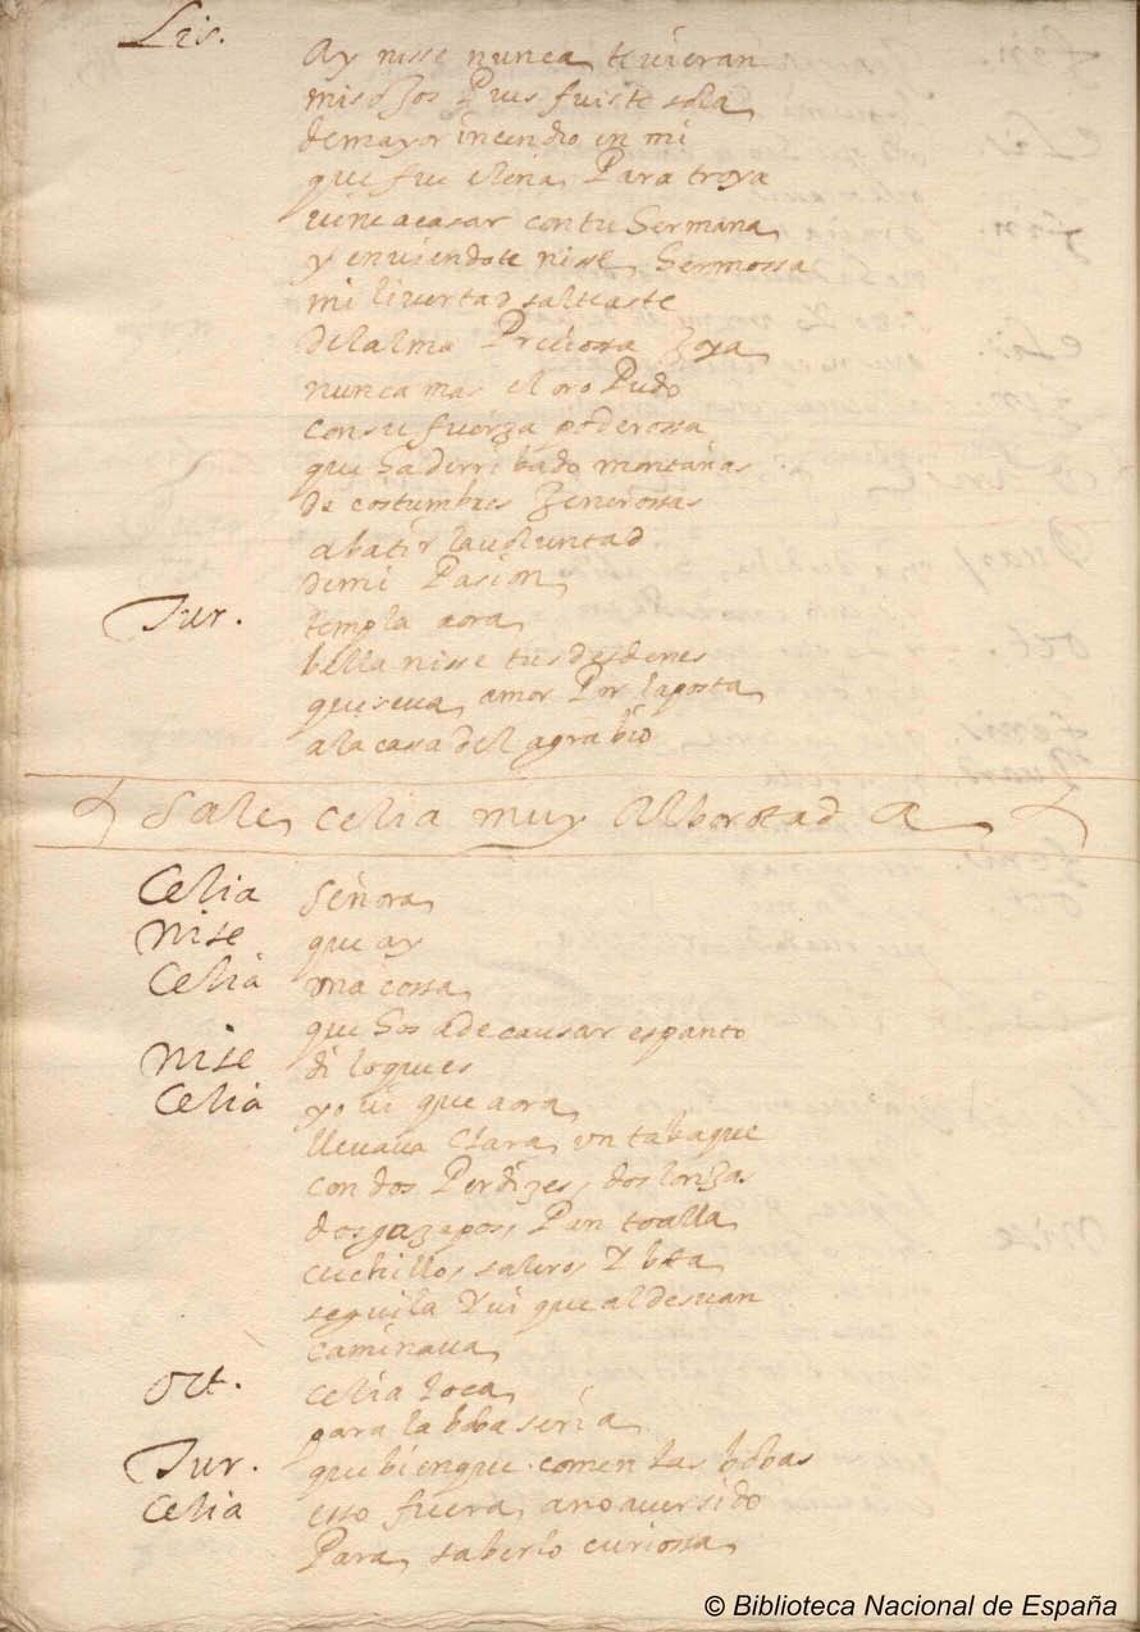 Lis. Ay nisse nunca te uieran
mis ojos Pues fuiste sola
de mayor incendio en mi
que fue elena Para troya
uine a casar con tu Hermana
y en uiendote nisse, Hermossa
mi liuertad salteaste
del alma Preciossa Joya
nunca mas el oro Pudo
con su fuerza poderossa
que Ha derribado montañas
de costumbres Jenerossas
abatir la uoluntad
de mi Pasion
Tur. templa aora
bella nisse tus desdenes
que se ua amor Por la posta
a la casa del agrabio
Sale celia muy Alborotada
Celia Señora
Nise que ay
Celia una cossa
que Hos a de causar espanto
Nise di lo que es
Celia yo ui que aora
lleuaua Clara un tabaque
con dos Perdizes, dos lonjas
dos gazapos, Pan toalla
cuchillo, salero, Y bota
seguila Y ui que al desuan
caminaua
Oct. celia loca
para la boba seria
Tur. que bien que comen las bobas
Celia esso fuera a no auer sido
Para saberlo curiossa
© Biblioteca Nacional de España